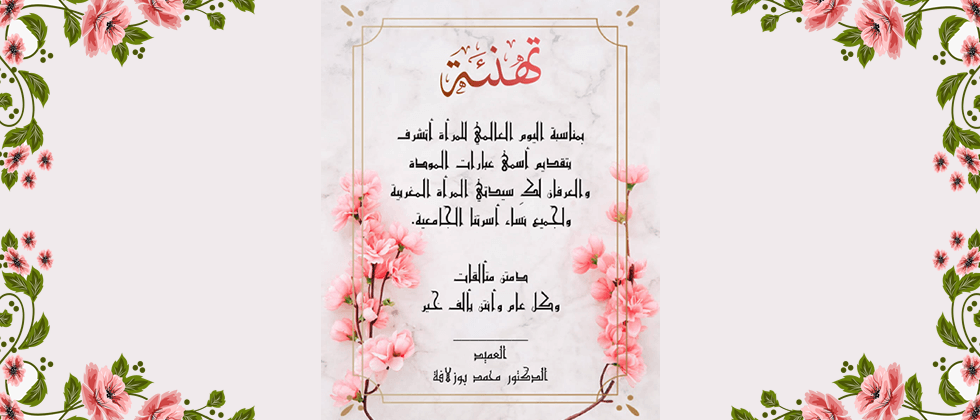 تهنئة
بمناسبة اليوم العالمي للمرأة أتشرف
بتقديم أسمى عبارات المودة
والعرفان لكِ سيدتي المرأة المغربية
ولجميع نساء أسرتنا الجامعية.
دمتن متألقات
وكل عام وأنتن بألف خير
العميد
الدكتور محمد بوزلافة